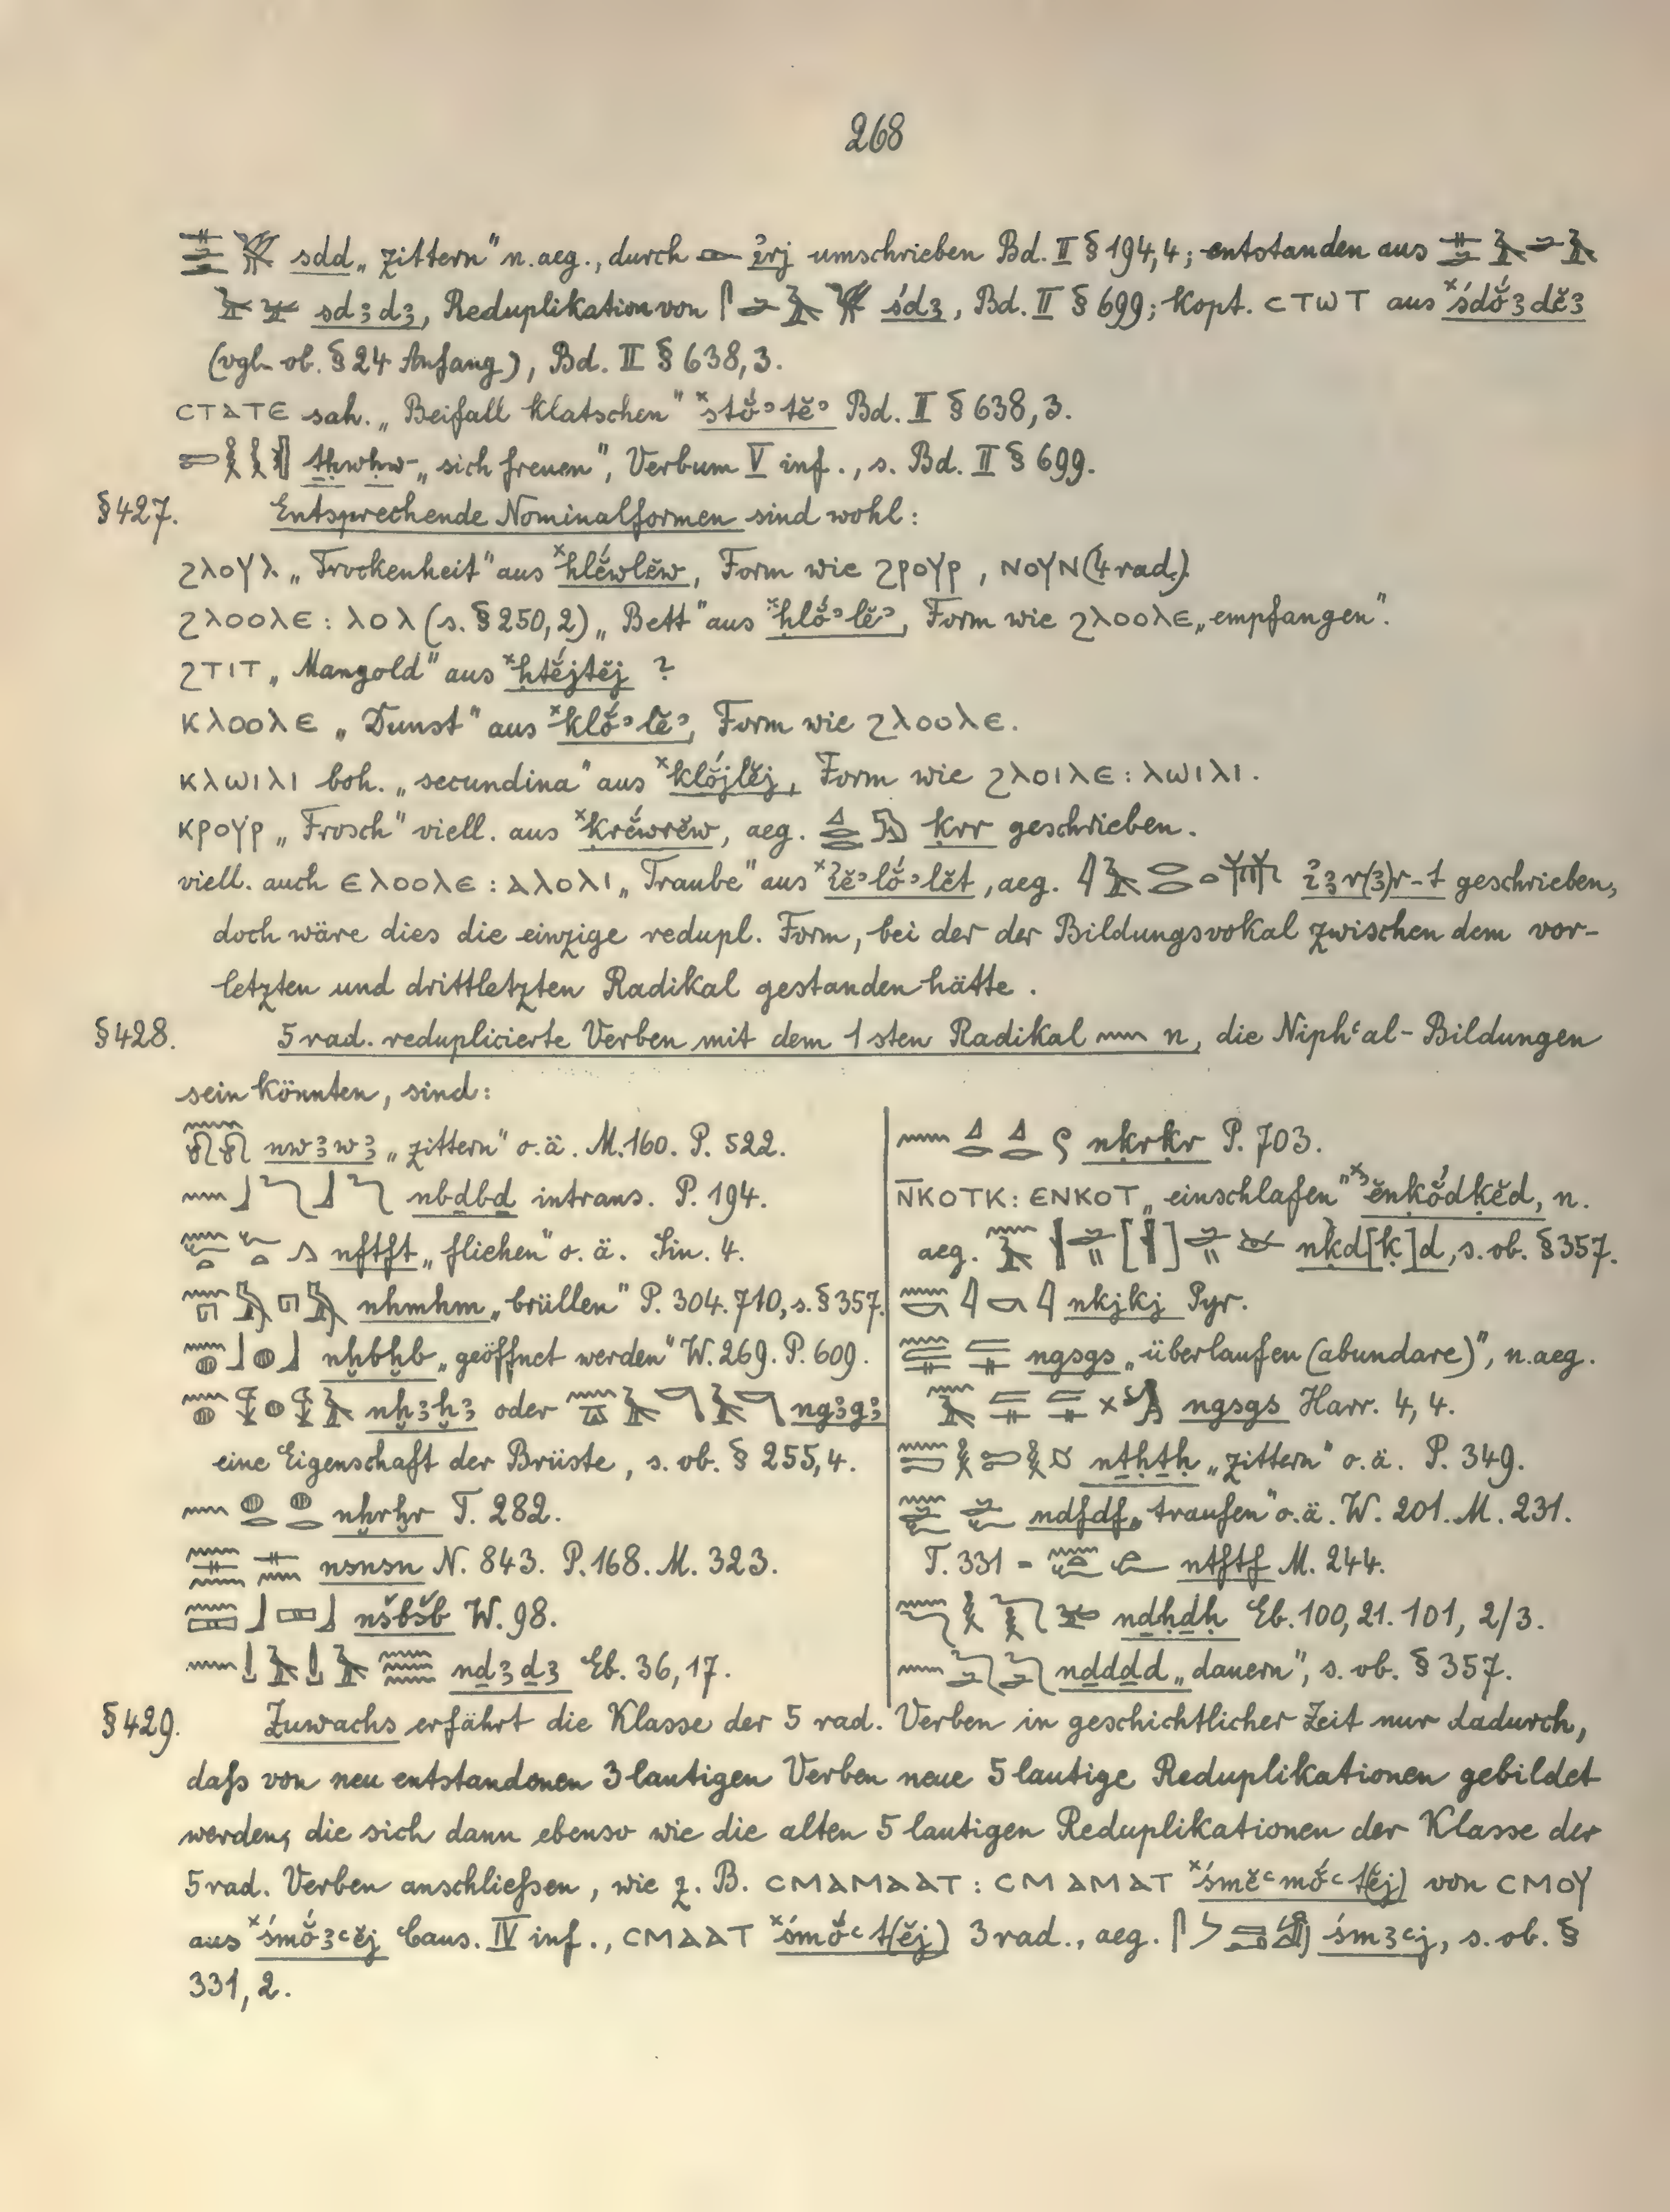 268
sdd „zittern“ n.aeg., durch ı͗rj umschrieben Bd. II § 194,4; entstanden aus
sdꜣdꜣ, Reduplikation von śdꜣ, Bd. II § 699; kopt. ⲥⲧⲱⲧ aus ˣśdŏ́ꜣdĕꜣ
(vgl. ob. § 24 Anfang), Bd. II § 638,3.
ⲥⲧⲁⲧⲉ sah. „Beifall klatschen“ ˣstŏ́ʾtĕʾ Bd. II § 638,3.
ṯḥwḥw „sich freuen“, Verbum V inf., s. Bd. II § 699.
§ 427. Entsprechende Nominalformen sind wohl:
ϩⲗⲟⲩⲗ „Trockenheit“ aus ˣhlĕ́wlĕw, Form wie ϩⲣⲟⲩⲣ, ⲛⲟⲩⲛ (4 rad.).
ϩⲗⲟⲟⲗⲉ : ⲗⲟⲗ (s. § 250,2) „Bett“ aus ˣḥlŏ́ʾlĕʾ, Form wie ϩⲗⲟⲟⲗⲉ „empfangen“.
ϩⲧⲓⲧ „Mangold“ aus ˣḥtĕ́jtĕj ?
ⲕⲗⲟⲟⲗⲉ „Dunst“ aus ˣklŏ́ʾlĕʾ, Form wie ϩⲗⲟⲟⲗⲉ.
ⲕⲗⲱⲓⲗⲓ boh. „secundina“ aus ˣklŏ́jlĕj, Form wie ϩⲗⲟⲓⲗⲉ : ⲗⲱⲓⲗⲓ.
ⲕⲣⲟⲩⲣ „Frosch“ viell. aus ˣḳrĕ́wrĕw, aeg. ḳrr geschrieben.
viell. auch ⲉⲗⲟⲟⲗⲉ : ⲁⲗⲟⲗⲓ „Traube“ aus ˣı͗ĕʾlŏ́ʾlĕt, aeg. ı͗ꜣr(ꜣ)r-t geschrieben,
doch wäre dies die einzige redupl. Form, bei der der Bildungsvokal zwischen dem vor-
letzten und drittletzten Radikal gestanden hätte.
§ 428. 5 rad. reduplicierte Verben mit dem 1sten Radikal n, die Niphʿal-Bildungen
sein könnten, sind:
nwꜣwꜣ „zittern“ o.ä. M. 160. P. 522.
nbḏbḏ intrans. P. 194.
nftft „fliehen“ o. ä. Sin. 4.
nhmhm „brüllen“ P. 304. 710, s. § 357.
nḫbḫb „geöffnet werden“ W. 269. P. 609.
nḫꜣḫꜣ oder ngꜣgꜣ
eine Eigenschaft der Brüste, s. ob. § 255,4.
nḫrḫr T. 282.
nsnsn N. 843. P. 168. M. 323.
nšbšb W. 98.
nḏꜣḏꜣ Eb. 36,17.
nḳrḳr P. 703.
ⲛ̅ⲕⲟⲧⲕ : ⲉⲛⲕⲟⲧ „einschlafen“ ˣĕnḳŏ́dḳĕd, n.
aeg. nḳd[ḳ]d, s. ob. § 357.
nkjkj Pyr.
ngsgs „überlaufen (abundare)“, n.aeg.
ngsgs Harr. 4,4.
nṯḥṯḥ „zittern“ o.ä. P. 349.
ndfdf „traufen“ o.ä. W. 201. M. 231.
T. 331 = ntftf M. 244.
nḏḥḏḥ Eb. 100,21. 101, 2/3.
nḏdḏd „dauern“, s. ob. § 357.
§ 429. Zuwachs erfährt die Klasse der 5 rad. Verben in geschichtlicher Zeit nur dadurch,
daſs von neu entstandenen 3 lautigen Verben neue 5 lautige Reduplikationen gebildet
werden, die sich dann ebenso wie die alten 5 lautigen Reduplikationen der Klasse der
5 rad. Verben anschlieſsen, wie z. B. ⲥⲙⲁⲙⲁⲁⲧ : ⲥⲙⲁⲙⲁⲧ ˣśmĕʿmŏ́ʿt(ĕj) von ⲥⲙⲟⲩ
aus ˣśmŏ́ꜣʿĕj Caus. IV inf., ⲥⲙⲁⲁⲧ ˣśmŏ́ʿt(ĕj) 3 rad., aeg. śmꜣʿj, s. ob. §
331,2.